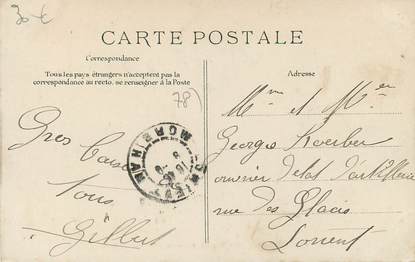 30 €
CARTE POSTALE
Correspondance
Tous les pays étrangers n'acceptent pas la
correspondance au recto, se renseigner à la Poste
Adresse
78
Gros baiser
Tous
Gillet
LORIENT MORBIHAN
Mme et Mer
Georges Koerber
ouvrier d'état d'artillerie
rue des Glacis
Lorient